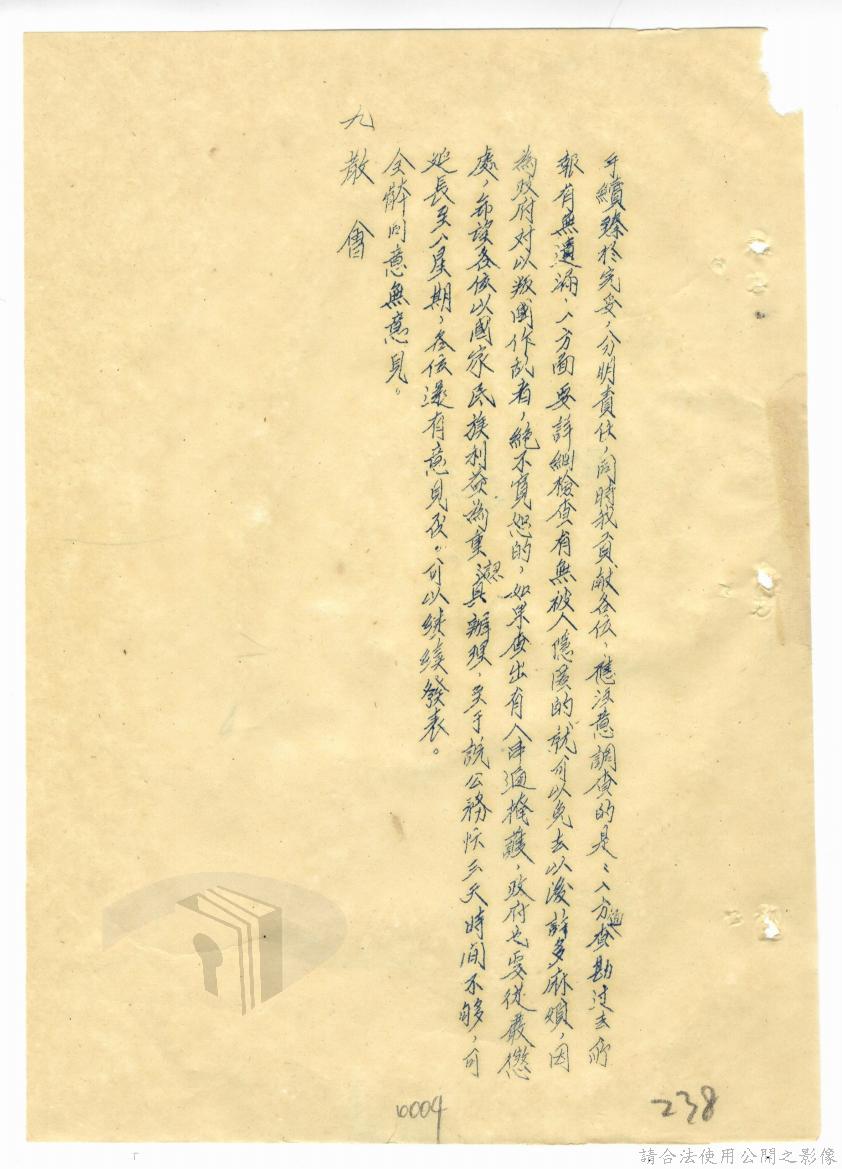 手續臻於完妥，分明責任，同時我貢献各位，應注意調查的是：一方面查勘过去所
報有無遺漏，一方面要詳細檢查有無被人隱匿的就可以免去以後許多麻煩，因
為政府对以叛國作乱者，絕不寬恕的，如果查出有人串通掩護，政府也要從嚴懲
處，希望各位以國家民族利益為重認真辦理，至于說公務忙三天時間不够，可
延長至一星期，各位還有意見否。可以继续發表。
全体同意無意見。
九 散 會
0004
238
請合法使用公開之影像